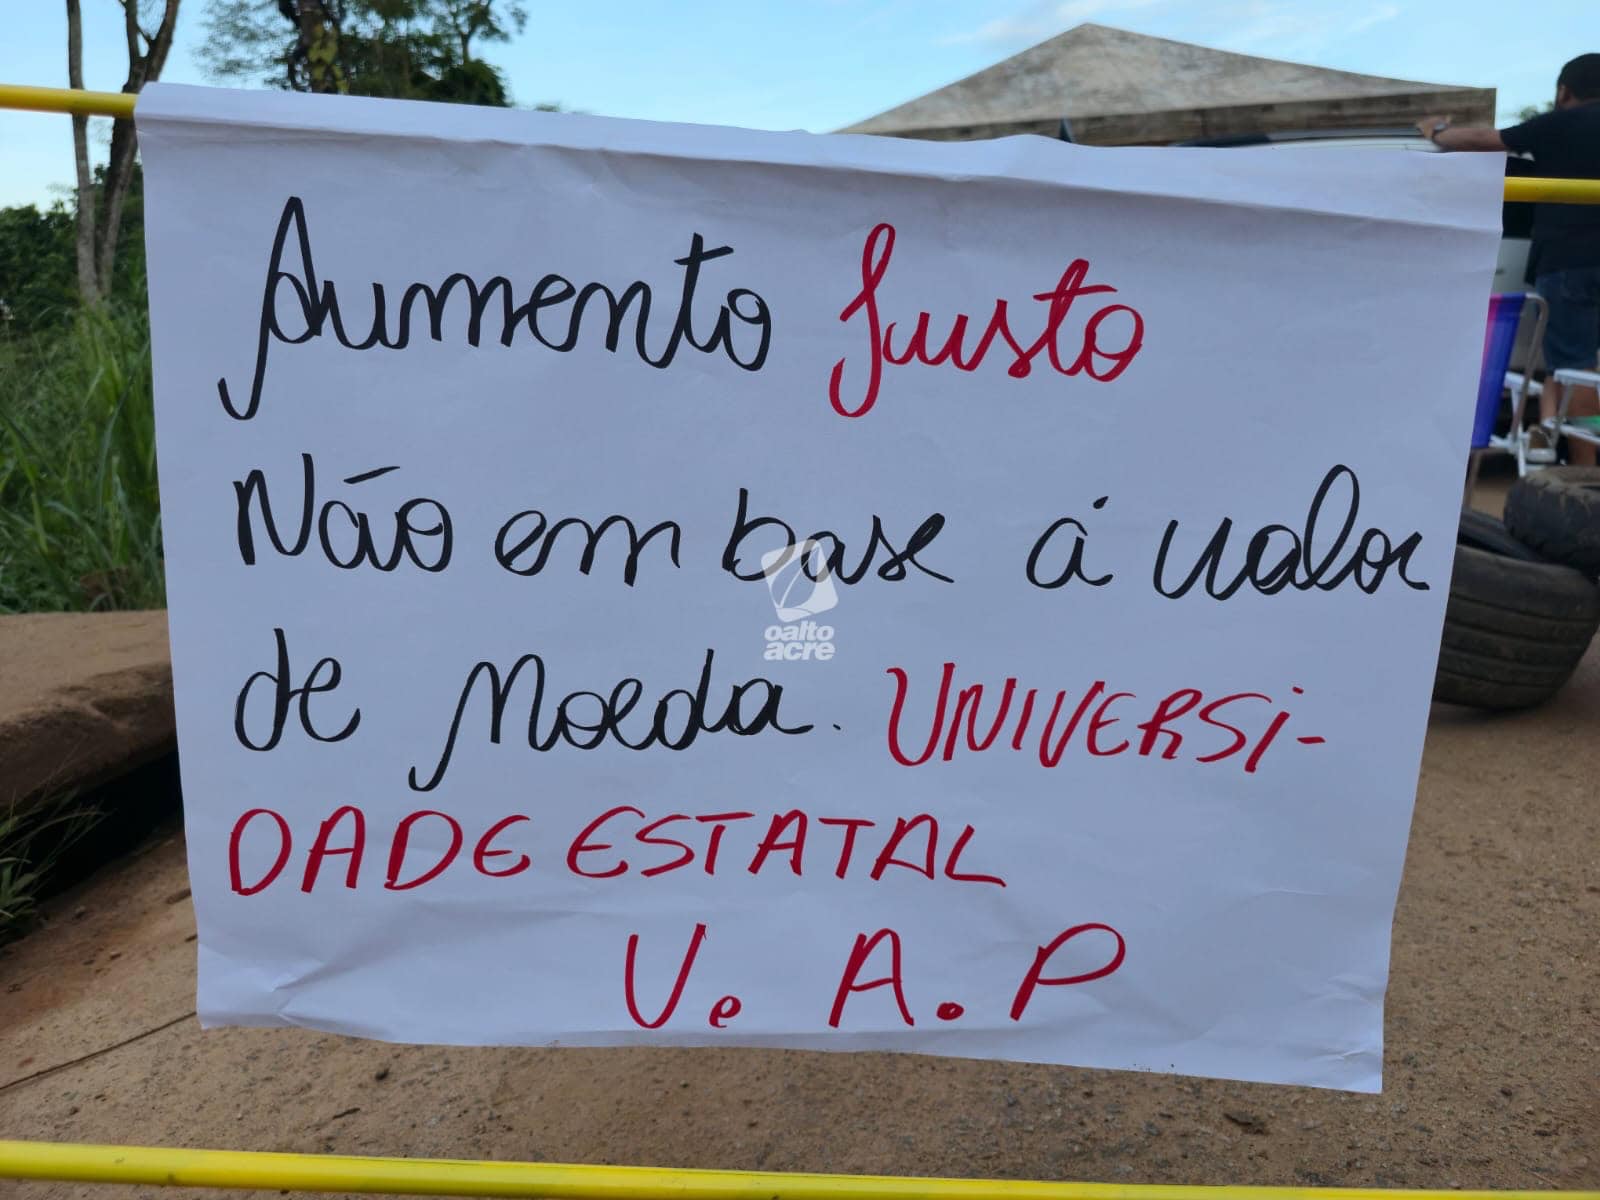 Aumento Justo
Não em base á valor
de Moeda. UNIVERSI-
DADE ESTATAL
U. A. P
oalto
acre